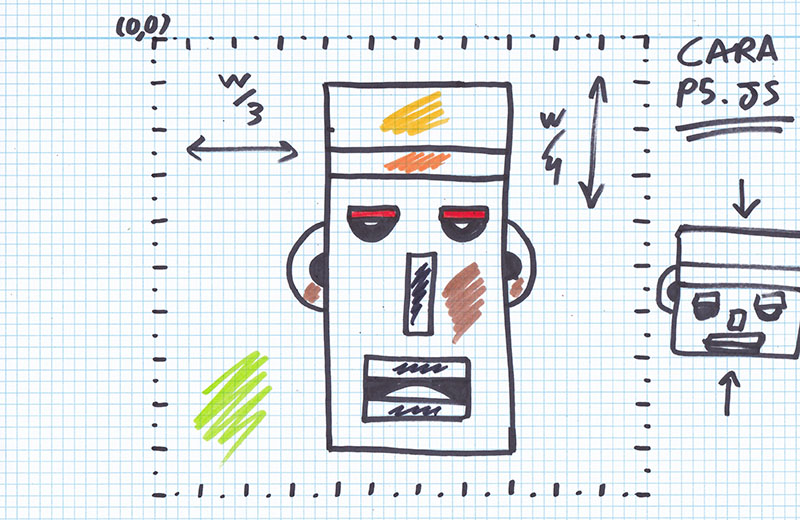 (0,0)
W/3
W/4
CARA
P5.JS